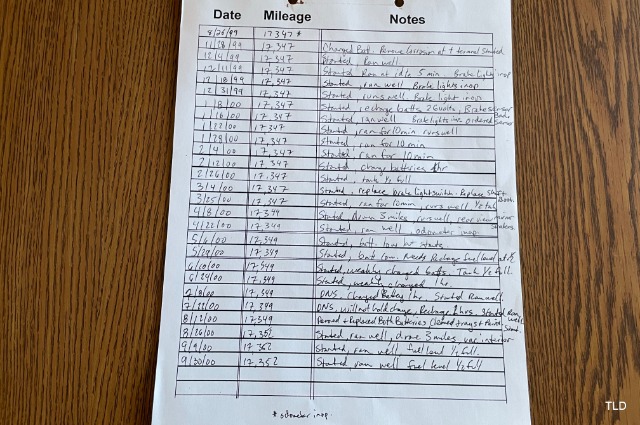 Date Mileage Notes
8/26/99 17347*
11/28/99 17,347 Charged Batt. Remove Corrosion at + terminal Started
12/4/99 17,347 Started, Ran well
12/11/99 17,347 Started Ran at idle 5 min Brake lights inop
12/18/99 17,347 Started, ran well, Brake lights inop
12/31/99 17,347 Started, runs well Brake light inop
1/8/00 17,347 Started, recharge batts 26volts, Brake sensor Bad
1/16/00 17,347 Started ran well Brakelights inop ordered Sensor
1/22/00 17,347 Started, ran for 10min runs well
1/28/00 17,347 Started, ran for 10 min
2/4/00 17,347 Started, ran for 10min
2/12/00 17,347 Started, charge batteries 1hr
2/26/00 17,347 Started, tank 1/2 full
3/4/00 17,347 Started, replace brake light switch. Replace Shift Boots.
3/25/00 17,347 Started, ran for 10min, runs well, 1/2 tank
4/8/00 17,349 Started driven 3 miles runs well, rear view mirror
4/22/00 17,349 Started, ran well, odometer inop
5/6/00 17,349 Started, batt. low but starts
5/29/00 17,349 Started, batt low. Needs Recharge fuel level at 1/2
6/10/00 17,349 Started, weakly charged batts. Tank 1/2 full.
6/24/00 17,349 Started, weakly charged 1hr
7/8/00 17,349 DNS, Charged Battery 1hr. Started Ran well
7/22/00 17,349 DNS, will not hold charge, Recharge 2hrs, Started Ran well
8/12/00 17,349 Removed + Replaced Both Batteries Cleaned trays + Paint.
8/26/00 17,352 Started, ran well, drove 3 miles, vac. interior
9/9/00 17,352 Started, ran well, fuel level 1/2 full.
9/20/00 17,352 Started ran well fuel level 1/2 full
* odometer inop.
TLD